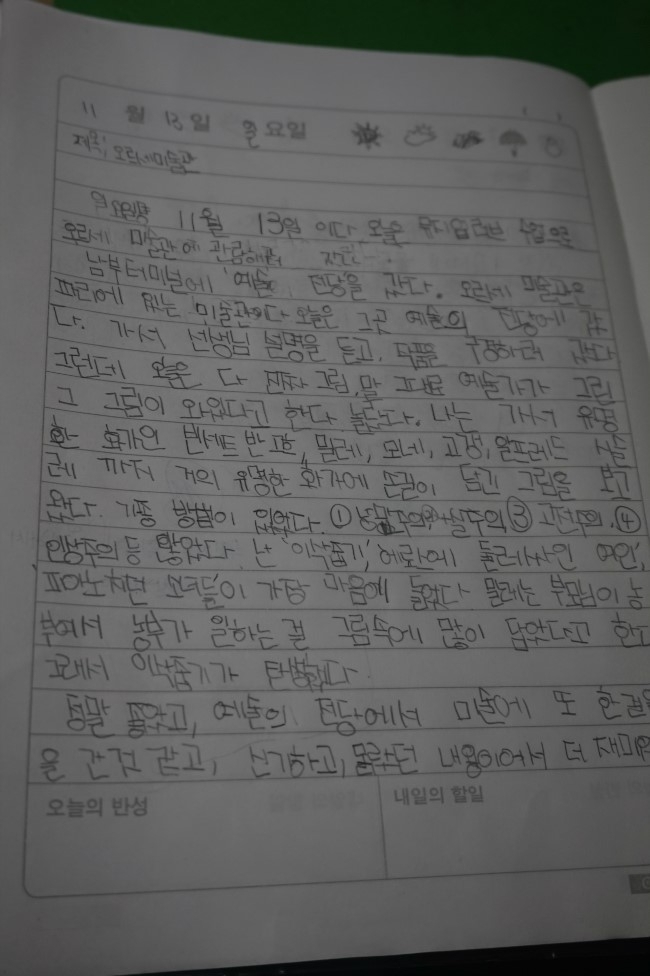 11 월 13 일 월 요일
제목: 오르세미술관
11월 13일 이다 오늘 뮤지엄러브 수업으로
오르세 미술관에 관람하러
남부터미널에 '예술 전당'을 갔다. 오르세 미술관은
파리에 있는 미술관이다 오늘은 그곳 예술의 전당에 갔
다. 가서 선생님 설명을 듣고, 작품을 구경하러 갔다
그런데 오늘은 다 진짜 그림, 말 그대로 예술가가 그린
그 그림이 와있다고 한다 놀랐다. 나는 가서 유명
한 화가인 빈센트 반 고흐, 밀레, 모네, 고갱, 알프레드 시슬
레 까지 거의 유명한 화가에 손길이 담긴 그림을 보고
왔다. 기중 방법이 있었다. ① 낭만주의 ② 사실주의 ③ 고전주의. ④
인상주의 등 많았다 난 '이삭줍기', 에로에 둘러싸인 여인,
피아노치던 소녀들이 가장 마음에 들었다 밀레는 부모님이 농
부여서 농부가 일하는 걸 그림속에 많이 담았다고 한다
그래서 이삭줍기가 탄생했다.
정말 좋았고, 예술의 전당에서 미술에 또 한걸음
을 간것 같고, 신기하고, 몰랐던 내용이어서 더 재미
오늘의 반성
내일의 할일